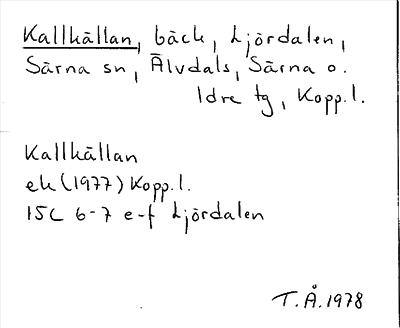 Kallkällan, bäck, Ljördalen,
Särna sn, Älvdals, Särna o.
Idre tg, Kopp.l.
Kallkällan
ek (1977) Kopp.l.
15C 6-7 e-f Ljördalen
T.Å.1978